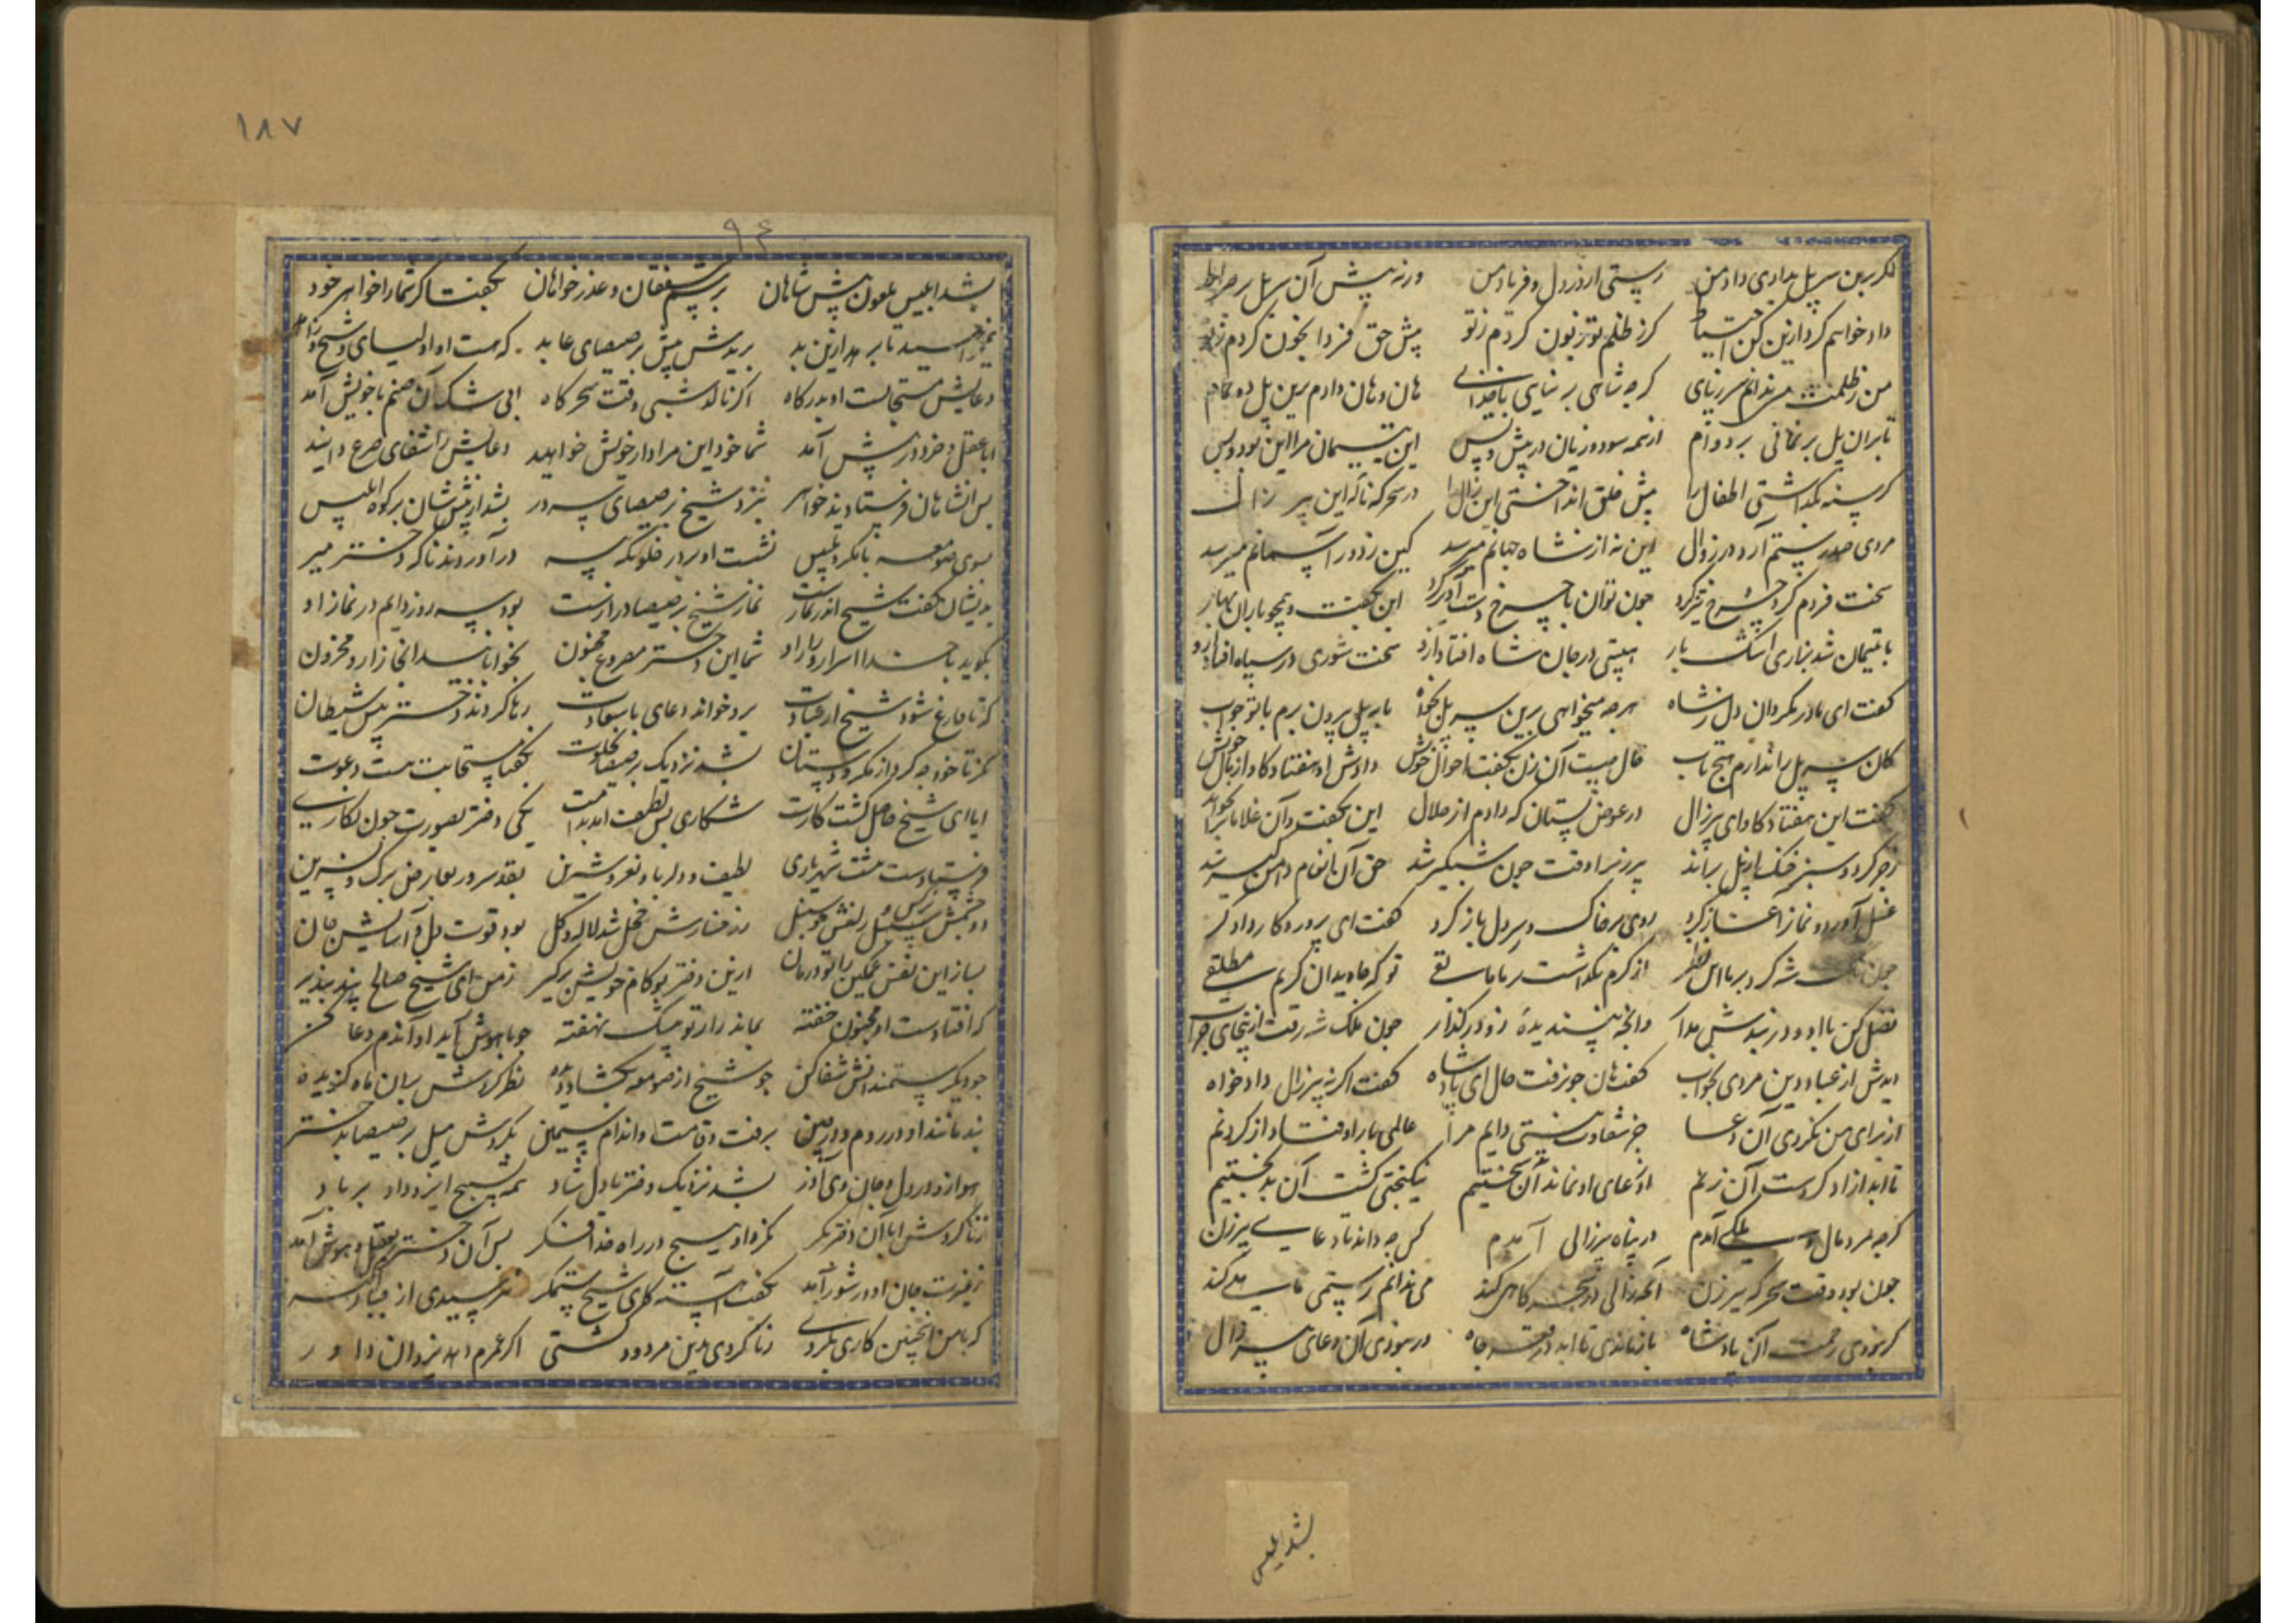 گر برین سر پل بدادی داد من رستی از درد دل و فریاد من ورنه پیش آن سر پل بر صراط
داد خواهم کرد ازین کن احتیاط کز ظلم تو زبون کردم ز تو پیش حق فردا بخون کردم ز تو
من ز ظلمت می ندانم سر ز پای کرچه شاهی بر نیایی با خدای هان و هان دادم برین پل ده تمام
تا بران پل بر نمانی بر دوام از همه سود و زیان در پیش و پس این یتیمان مرا این بود و بس
کرسنه بگذاشتی اطفال را پیش خلق انداختی این زال را در سحرکه ناله این پیر زال
مردی صد رستم آرد در زوال این نه از شاه جهانم میرسد کین ز دور آسمانم میرسد
سخت فردم کرد چرخ تیزکرد چون توان با چرخ دست آورد کرد این بکفت و همچو باران بهار
با یتیمان شد بزاری اشک بار هیبتی در جان شاه افتاد ازو سخت شوری در سپاه افتاد ازو
کفت ای مادر مکردان دل ز شاه هرچه میخواهی برین سر پل بخواه تا بر پل بردن برم با تو جواب
کان سر پل را ندارم هیچ تاب حال هیبت آن زن بکفت احوال خویش دادش او هفتاد کاو از مال خویش
کفت این هفتاد کاو ای پیر زال در عوض بستان که دادم از حلال این بکفت و آن غلامانرا بخواند
زجر کرد و سبز خنک از پل براند پیرزنرا وقت چون شبکیر شد حق آن انعام دامن کیر شد
غسل آورد و نماز آغاز کرد روی بر خاک و سر دل باز کرد کفت ای پروردکار دادکر
چون ملک شه کرد بر ما این نظر از کرم نکذاشت بر ما ما بقی تو که جاویدان کریم مطلقی
فضل کن با او و در بندش مدار وانچه نپسندیده زو درکذار چون ملک شه رفت ازینجای خراب
دیدش از عباد دین مردی بخواب کفت هان چون رفت حال ای پادشاه کفت اکر نه پیر زال دادخواه
از برای من نکردی آن دعا جز شقاوت نیستی دایم مرا عالمی بار اوفتاد از کردنم
تا ابد آزاد کردست آن زنم از دعای او نماند آن سختیم نیکبختی کشت آن بدبختیم
کرچه مرد مال و ملکی آمدم در پناه پیر زالی آمدم کس چه داند تا دعای پیر زن
چون بود وقت سحرکه پیرزن آنچه زالی در سحرکاهی کند می ندانم رستمی ماهی کند
کر نبودی رحمت آن پادشاه بازماندی تا ابد در قعر چاه ور نبودی آن دعای پیر زال
بشد ابلیس
۱۸۷
۹۴
بشد ابلیس ملعون پیش شاهان برسم مشفقان و عذر خواهان بکفتا کر شما را خواهر خود
همی خواهید تا برهد ازین بد بریدش پیش برصیصای عابد که هست او اولیای و شیخ و زاهد
دعایش مستجابست او بدرکاه اکر نالد شبی وقت سحرکاه ابی شک آن صنم با خویش آمد
ابا عقل و خرد در پیش آمد شما خود این مراد از خویش خواهید دعایش را شفای صرع دانید
پس آنشاهان فرستادند خواهر بنزد شیخ برصیصای سرور بشد از پیش شان بر کوه ابلیس
بسوی صومعه با مکر و تلبیس نشست او بر در خلوتکه پیر در آوردند ناکه دختر میر
بدیشان کفت شیخ اندر نمازست نماز شیخ برصیصا درازست بود سه روز دایم در نماز او
بکوید با خدا اسرار و راز او شما این دختر مصروع مجنون بخوابانید انجا زار و محزون
که تا فارغ شود شیخ از عبادت برو خواند دعای با سعادت رها کردند دختر پیش شیطان
که تا خود چه کرد از مکر و دستان بشد نزدیک برصیصا بخلوت بکفتا مستجابت هست دعوت
ایا ای شیخ حاصل کشت کارت شکاری بس لطیف آمد بدامت یکی دختر بصورت چون نکاری
فرستادست مشت شهریاری لطیف و دلربا و نغز و شیرین بقد سرو و بعارض برک نسرین
دو چشمش نرکس و زلفش چو سنبل ز رخسارش خجل شد لاله و کل بود قوت دل و آسایش جان
بساز این نفس غمکین را تو درمان ازین دختر تو کام خویش برکیر ز من ای شیخ صالح پند بپذیر
که افتادست او مجنون خفته بماند راز تو بیشک نهفته چو با هوش آید او آندم دعا کن
چو دیکر مستمندانش شفا کن چو شیخ از صومعه بکشاد دیده نظر کردش بدان ماه کزیده
بد مانند او در روم و در چین برفت و قامت و اندام سیمین بکردش میل برصیصا بدختر
هوا زد در دل و جان وی آذر بشد نزدیک دختر با دل شاد همه تسبیح ایزد داد بر باد
زنا کردش ابا آن دختر بکر نکرد او هیچ در راه خدا فکر پس آن دختر بعقل و هوش آمد
ز غیرت جان او در شور آمد بکفت آهسته کای شیخ ستمکر نترسیدی از جبار
که با من اینچنین کاری بکردی زنا کردی و بین مردود کشتی اکر عمرم دهد یزدان داور